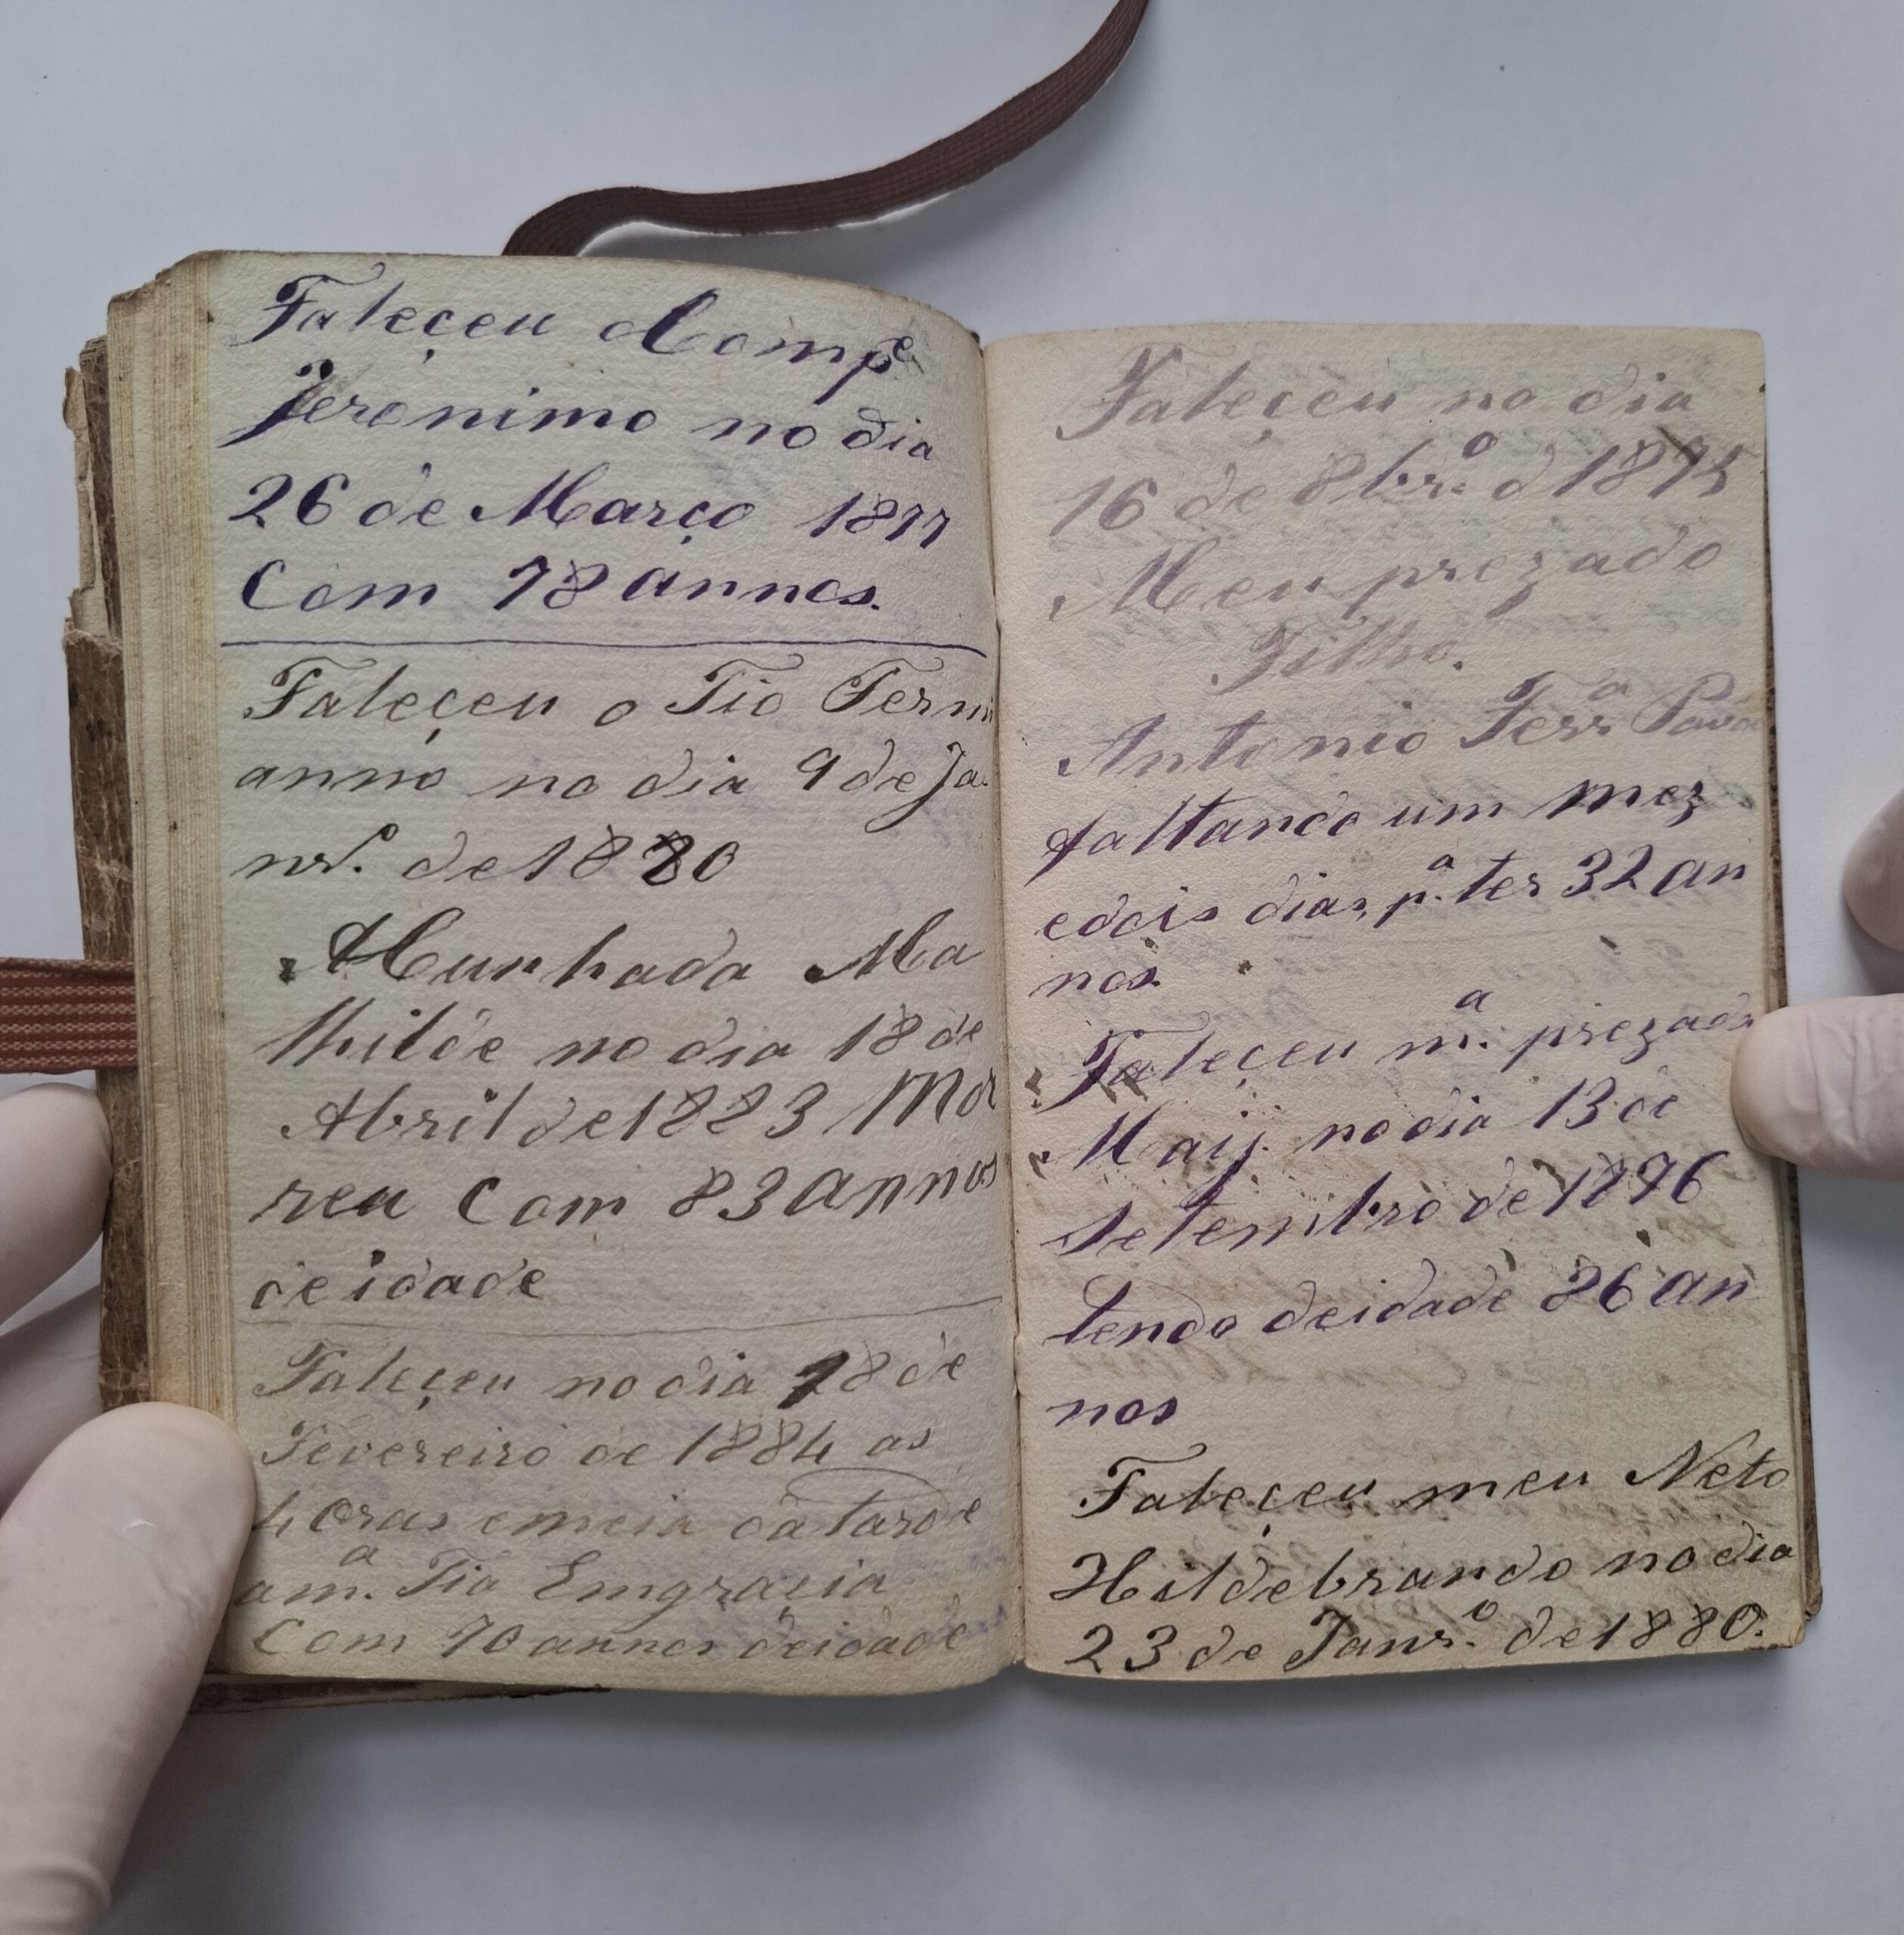 Faleçeu o Comp.e
Jeronimo no dia
26 de Março 1877
Com 78 annos.
Faleçeu o Tio Firmi
anno no dia 9 de Ja
nr.o de 1880
A Cunhada Ma
thilde no dia 18 de
Abril de 1883 Mor
reu Com 83 annos
de idade
Faleçeu no dia 18 de
Fevereiro de 1884 as
4 oras emeia da tarde
a m.a Tia Emgraçia
Com 70 annos deidade
Faleçeu no dia
16 de 8br.o d 1875
Meu prezado
Filho.
Antonio Ferr.a
faltando um mez
edois dias p.a ter 32 an
nos.
Faleçeu m.a prezada
Maij. no dia 13 de
Setembro de 1876
tendo deidade 86 an
nos
Faleçeu meu Neto
Hildebrando no dia
23 de Janr.o de 1880.